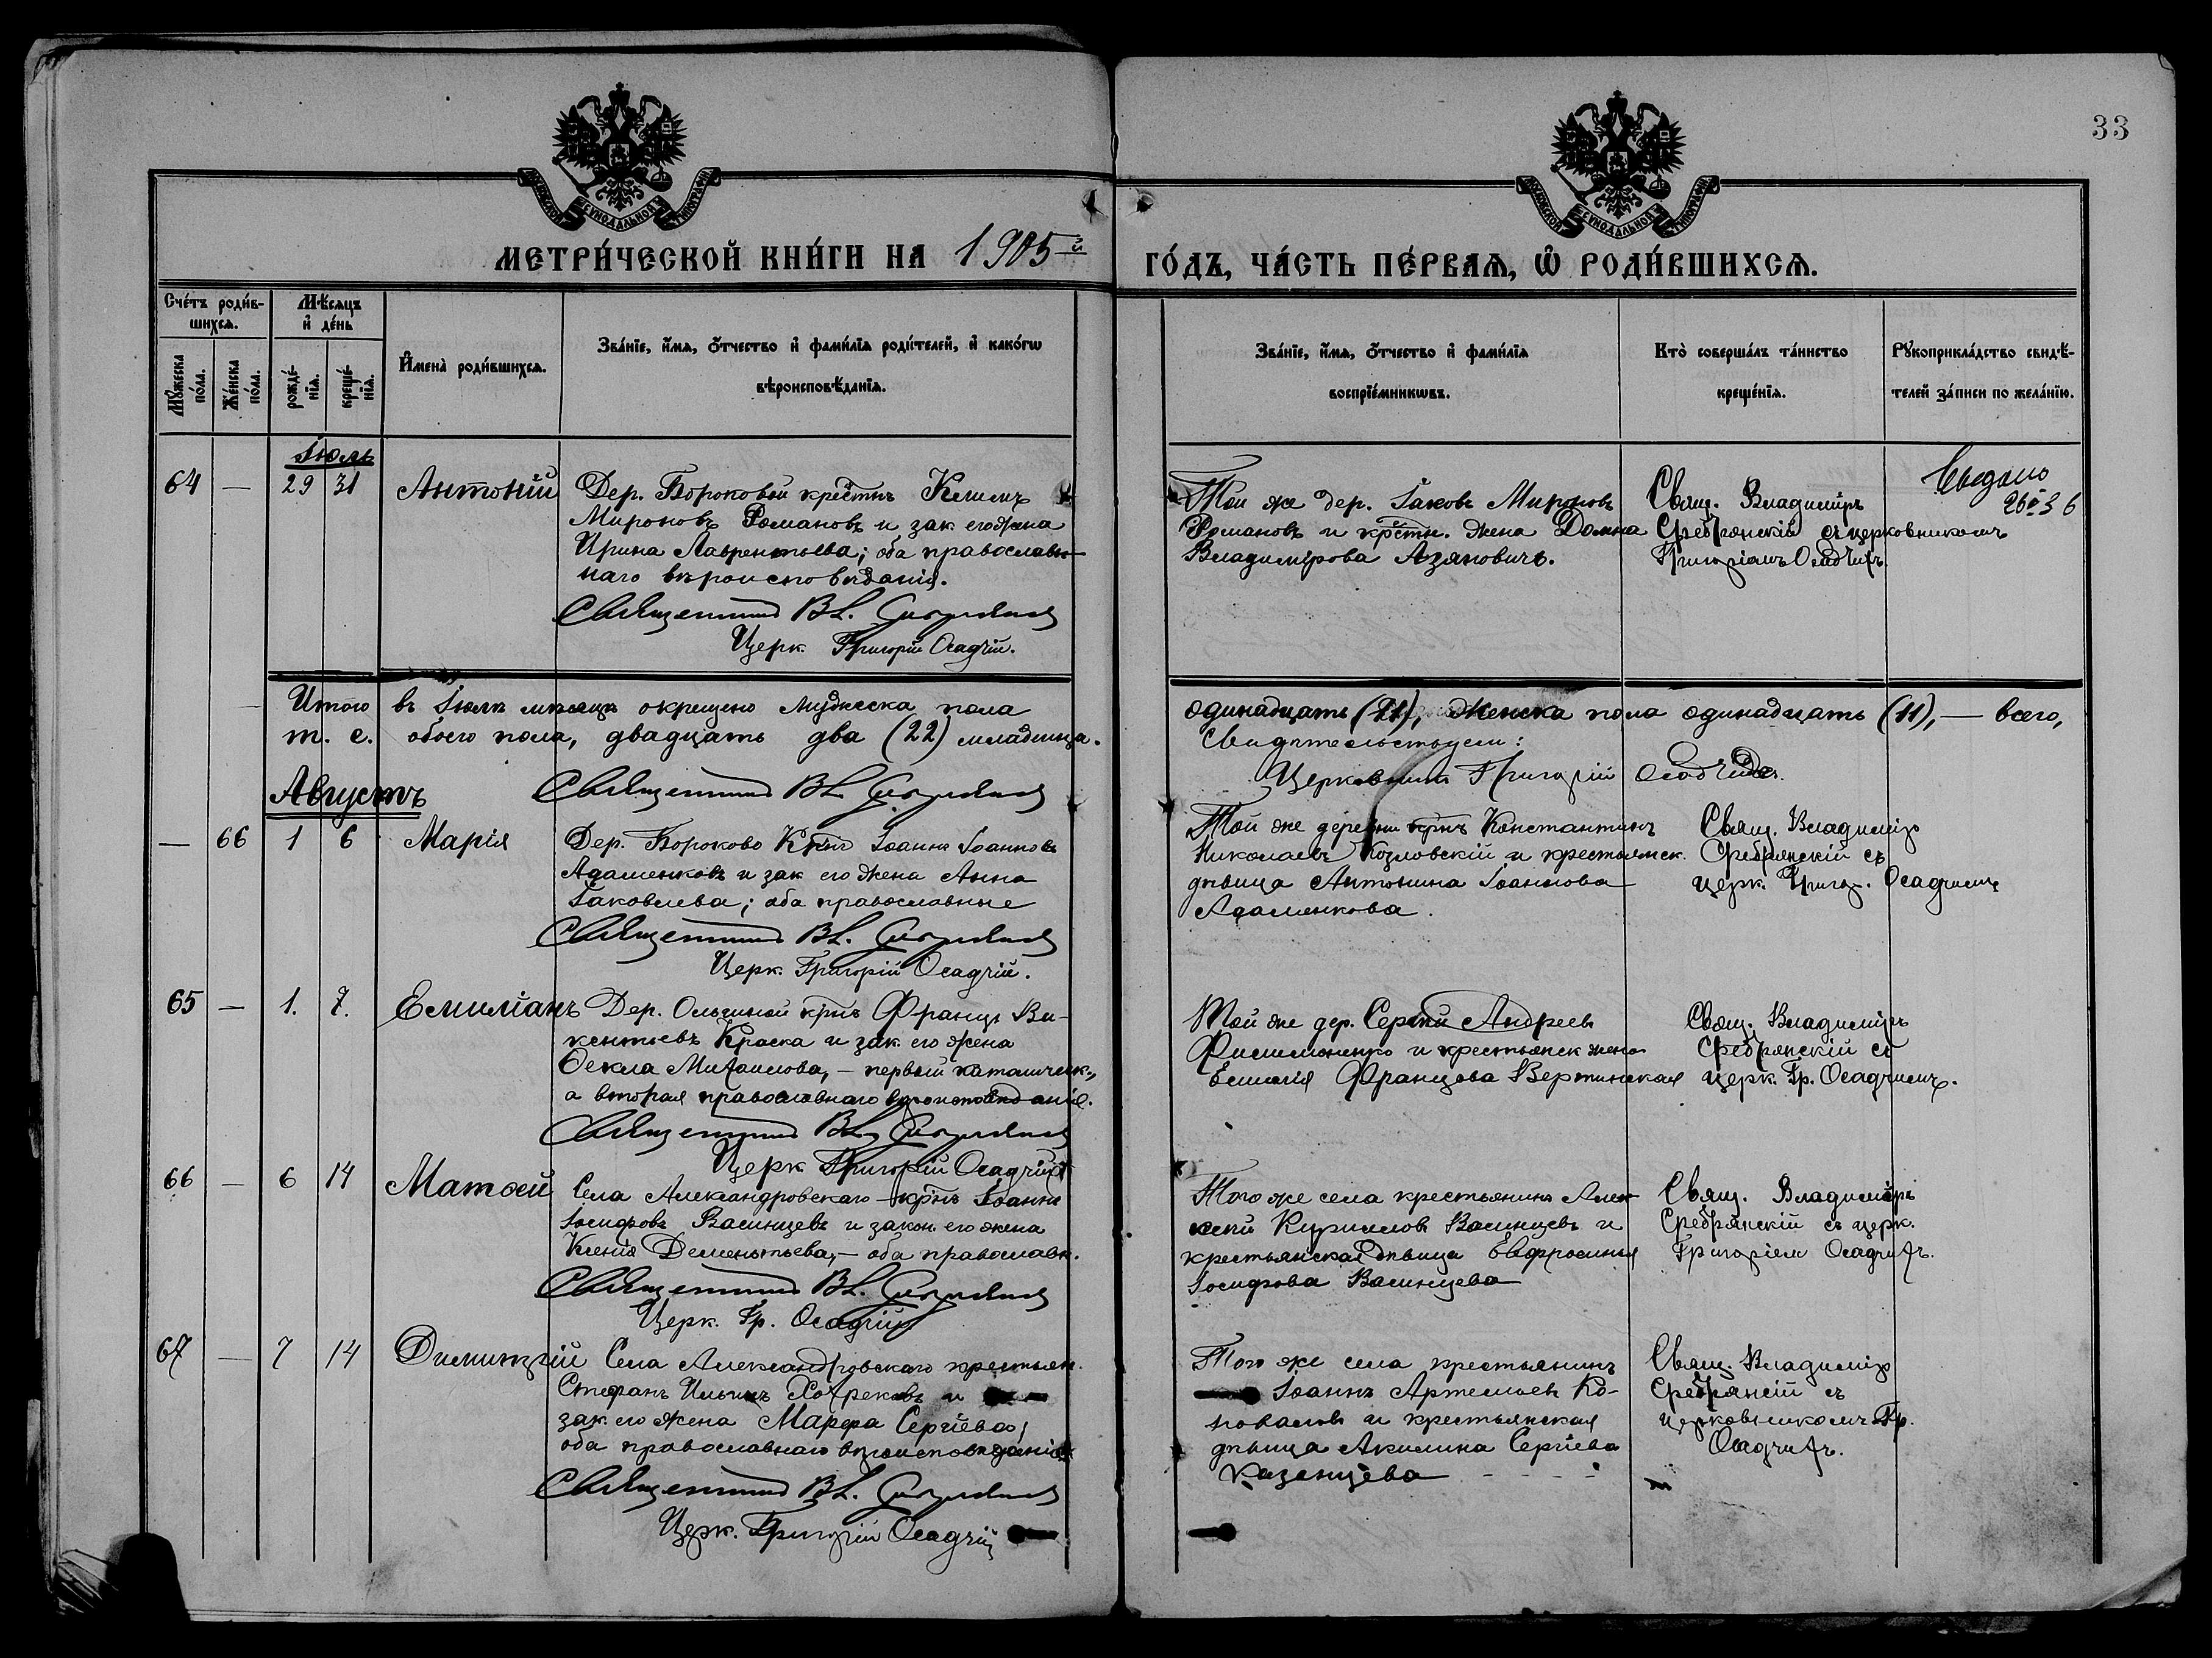 33
МОСКОВСКОЙ СѴНОДАЛЬНОЙ ТИПОГРАФІИ
МОСКОВСКОЙ СѴНОДАЛЬНОЙ ТИПОГРАФІИ
МЕТРИ́ЧЕСКОЙ КНИ́ГИ НА 1905й
ГО́ДЪ, ЧА́СТЬ ПЕ́РВАѦ, Ѽ РОДИ́ВШИХСѦ.
Сче́тъ роди́в-
шихсѧ.
Мꙋ́жеска по́ла.
Же́нска по́ла.
Мѣ́сѧцъ
и҆ де́нь
рожде́-
нїѧ.
креще́-
нїѧ.
И҆мена̀ роди́вшихсѧ.
Зва́нїе, и҆́мѧ, ѻ҆́тчество и҆ фами́лїѧ роди́телей, и҆ како́гѡ
вѣроисповѣ́данїѧ.
Зва́нїе, и҆́мѧ, ѻ҆́тчество и҆ фами́лїѧ
воспрїе́мникѡвъ.
Кто̀ соверша́лъ та́инство
креще́нїѧ.
Рꙋкоприкла́дство свидѣ́-
телей за́писи по жела́нїю.
Іюль
64 — 29 31 Антоній
Дер. Бороковой крестнъ Климъ
Мироновъ Романовъ и зак его жена
Ирина Лаврентьева; оба православ-
наго вѣроисповѣданія.
Священникъ Вл. Сребрянскій
Церк. Григорій Осадчій.
Той же дер. Іаковъ Мироновъ
Романовъ и крстн. жена Домна
Владимірова Азяновичъ.
Свящ. Владиміръ
Сребрянскій съ церковникомъ
Григоріемъ Осадчимъ.
Выдано
Итого въ Іюлѣ мѣсяцѣ окрещено мужеска пола
одинадцать (11), женска пола одинадцать (11), — всего,
т. е. обоего пола, двадцать два (22) младенца.
Свидѣтельствуемъ:
Священникъ Вл. Сребрянскій
Церковникъ Григорій Осадчій.
Августъ
— 66 1 6 Марія
Дер. Бороково Крнъ Іоаннъ Іоанновъ
Адаменковъ и зак его жена Анна
Іаковлева; оба православные
Священникъ Вл. Сребрянскій
Церк. Григорій Осадчій.
Той же деревни крнъ Константинъ
Николаевъ Козловскій и крестьянск.
дѣвица Антонина Іоаннова
Адаменкова.
Свящ. Владиміръ
Сребрянскій съ
церк. Григ. Осадчимъ
65 — 1. 7. Емиліанъ
Дер. Ольгиной крнъ Францъ Ви-
кентьевъ Краска и зак его жена
Ѳекла Михаилова, — первый католическ.,
а вторая православнаго вѣроисповѣданія.
Священникъ Вл. Сребрянскій
Церк Григорій Осадчій
Той же дер. Сергѣй Андреевъ
Филимоненко и крестьянск жена
Емилія Францова Вертинская
Свящ. Владиміръ
Сребрянскій съ
церк. Гр. Осадчимъ.
66 — 6 14 Матѳей
Села Александровскаго крнъ Іоаннъ
Іосифовъ Васинцевъ и закон его жена
Ксенія Дементьева, — оба православн.
Священникъ Вл. Сребрянскій
Церк. Гр. Осадчій
Того же села крестьянинъ Алек-
сѣй Кирилловъ Васинцевъ и
крестьянская дѣвица Евфросинія
Іосифова Васинцева
Свящ. Владиміръ
Сребрянскій съ церк.
Григоріем Осадчимъ.
67 — 7 14 Димитрій
Села Александровскаго крестьян.
Стефанъ Ильинъ и
зак его жена Марфа Сергіева;
оба православнаго вѣроисповѣданія
Священникъ Вл. Сребрянскій
Церк. Григорій Осадчій
Того же села крестьянинъ
Іоаннъ Артемьевъ Ко-
новаловъ и крестьянская
дѣвица Акилина Сергіева
Казанцева
Свящ. Владиміръ
Сребрянскій съ
церковникомъ Гр.
Осадчимъ.